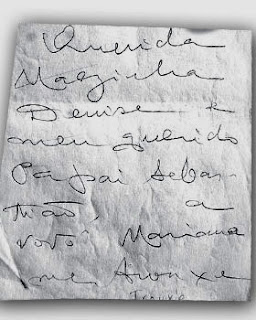 Querida
Mãezinha
Denise e
meu querido
Papai Sebas
tião, a
vovó Mariana
me trouxe
Trouxe